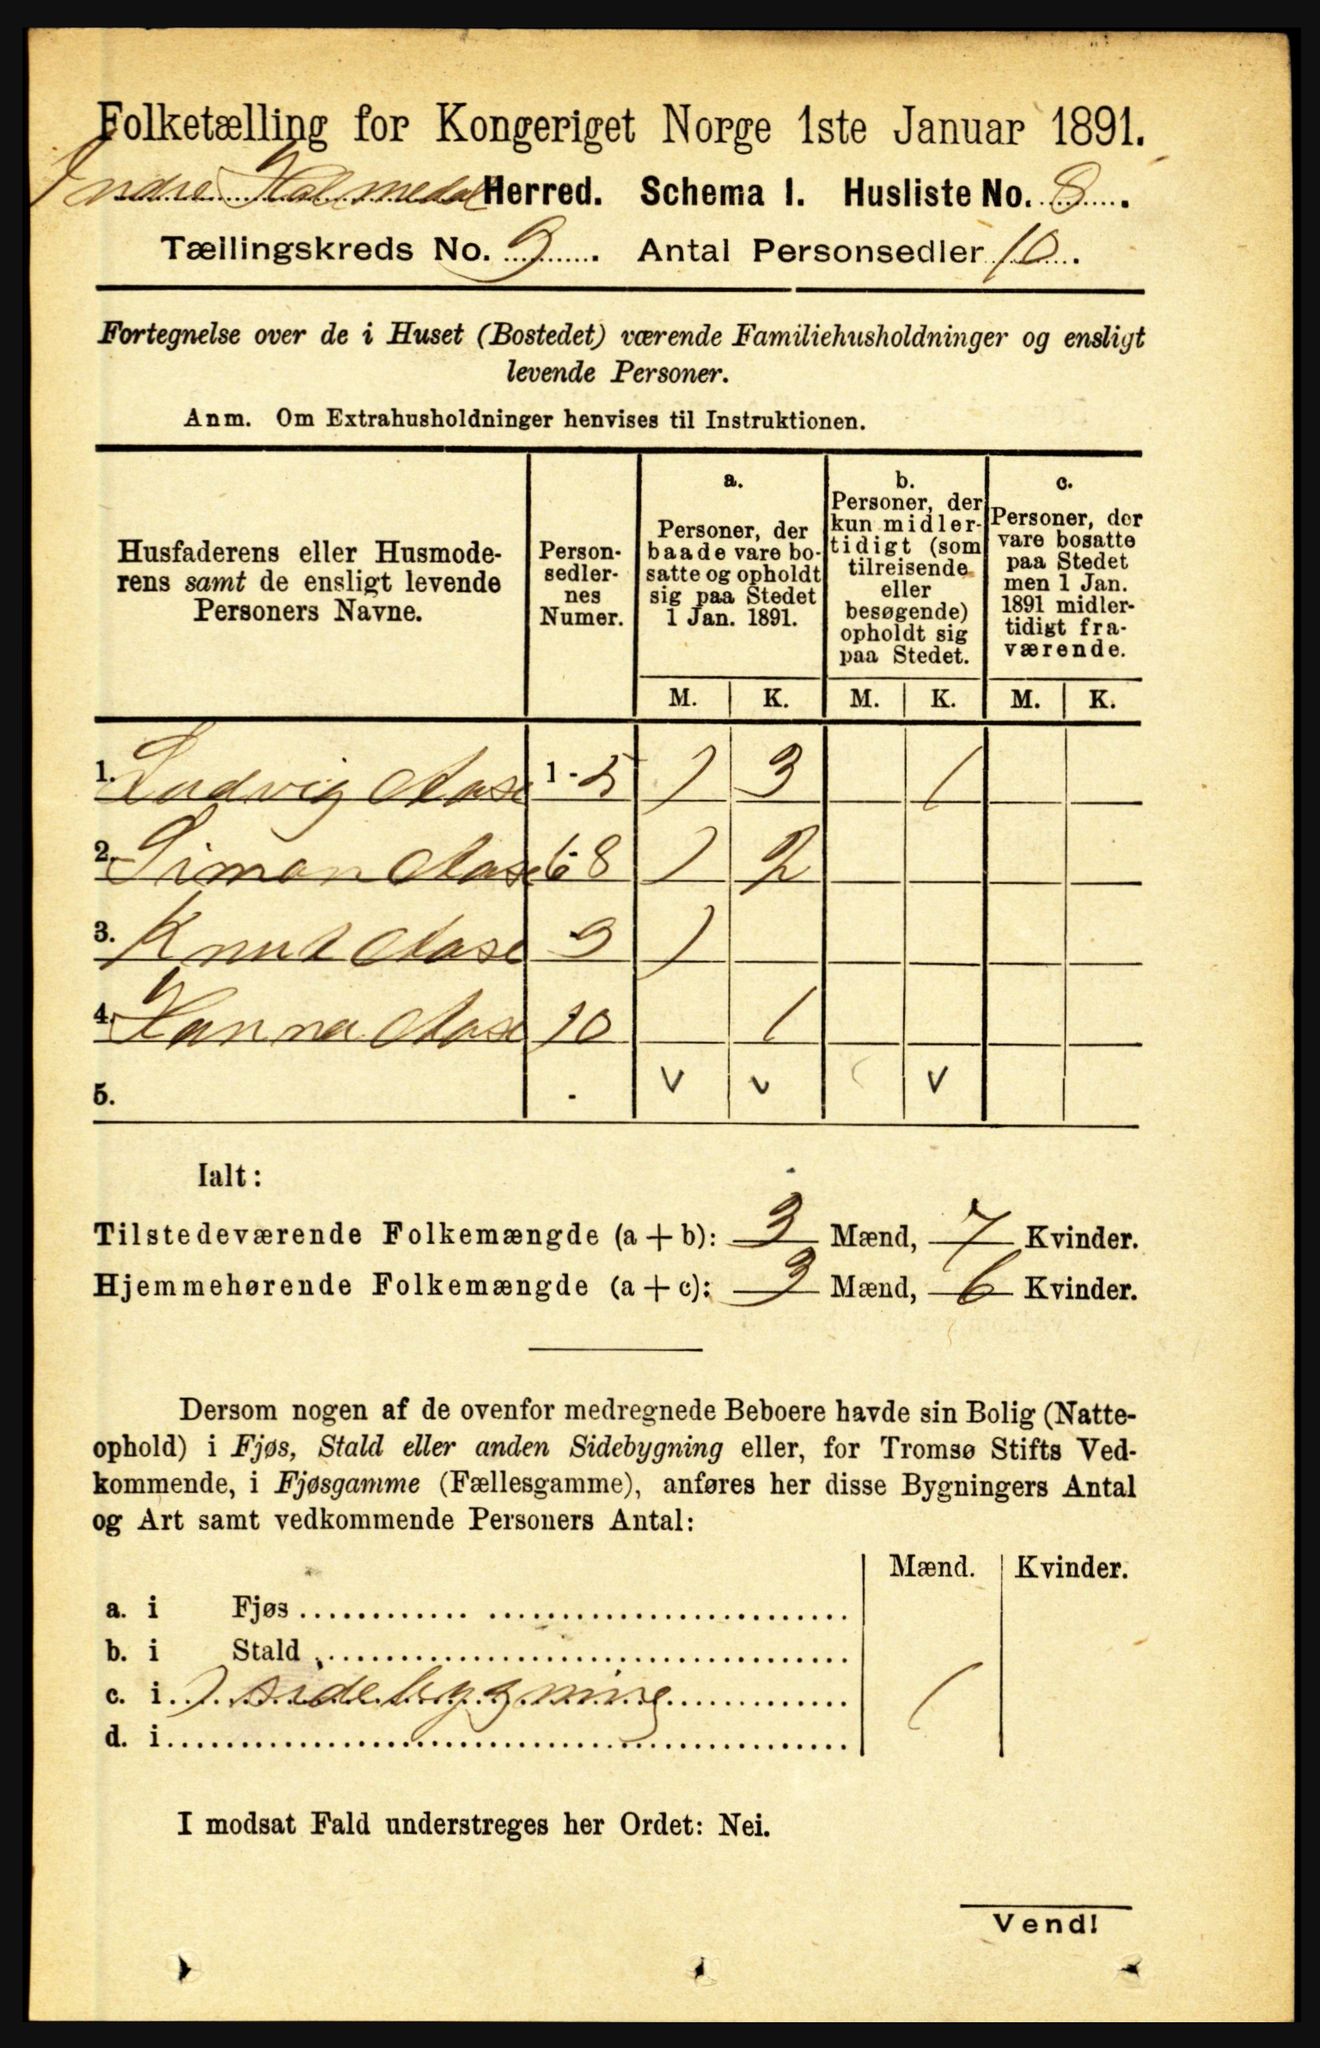 Folketælling for Kongeriget Norge 1ste Januar 1891.
Indre Holmedal Herred. Schema I. Husliste No. 8.
Tællingskreds No. 9. Antal Personsedler 10.
Fortegnelse over de i Huset (Bostedet) værende Familiehusholdninger og ensligt
levende Personer.
Anm. Om Extrahusholdninger henvises til Instruktionen.
Husfaderens eller Husmode-
rens samt de ensligt levende
Personers Navne.
Person-
sedler-
nes
Numer.
a.
Personer, der
baade vare bo-
satte og opholdt
sig paa Stedet
1 Jan. 1891.
b.
Personer, der
kun midler-
tidigt (som
tilreisende
eller
besøgende)
opholdt sig
paa Stedet.
c.
Personer, der
vare bosatte
paa Stedet
men 1 Jan.
1891 midler-
tidigt fra-
værende.
M. K. M. K. M. K.
1. Ludvig Aase 1-5 1 3 1
2. Simon Aase 6-8 1 2
3. Knut Aase 9 1
4. Hanna Aase 10 1
5. . v v v
Ialt:
Tilstedeværende Folkemængde (a + b): 3 Mænd, 7 Kvinder.
Hjemmehørende Folkemængde (a + c): 3 Mænd, 6 Kvinder.
Dersom nogen af de ovenfor medregnede Beboere havde sin Bolig (Natte-
ophold) i Fjøs, Stald eller anden Sidebygning eller, for Tromsø Stifts Ved-
kommende, i Fjøsgamme (Fællesgamme), anføres her disse Bygningers Antal
og Art samt vedkommende Personers Antal:
Mænd. Kvinder.
a. i Fjøs
b. i Stald
c. i 1 sidebygning 1
d. i
I modsat Fald understreges her Ordet: Nei.
Vend!